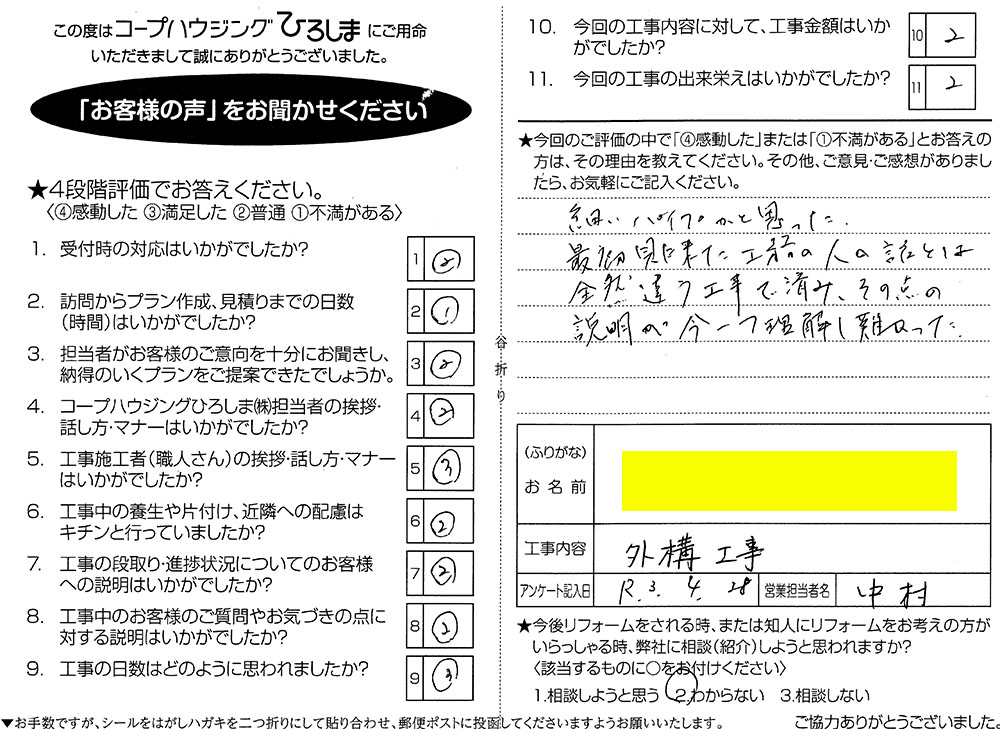 この度はコープハウジングひろしまにご用命
いただきまして誠にありがとうございました。
「お客様の声」をお聞かせください
★4段階評価でお答えください。
〈④感動した ③満足した ②普通 ①不満がある〉
1. 受付時の対応はいかがでしたか?
1 ②
2. 訪問からプラン作成、見積りまでの日数
(時間)はいかがでしたか?
2 ①
3. 担当者がお客様のご意向を十分にお聞きし、
納得のいくプランをご提案できたでしょうか。
3 ②
4. コープハウジングひろしま㈱担当者の挨拶・
話し方・マナーはいかがでしたか?
4 ②
5. 工事施工者(職人さん)の挨拶・話し方・マナー
はいかがでしたか?
5 ③
6. 工事中の養生や片付け、近隣への配慮は
キチンと行っていましたか?
6 ②
7. 工事の段取り・進捗状況についてのお客様
への説明はいかがでしたか?
7 ②
8. 工事中のお客様のご質問やお気づきの点に
対する説明はいかがでしたか?
8 ②
9. 工事の日数はどのように思われましたか?
9 ③
▼お手数ですが、シールをはがしハガキを二つ折りにして貼り合わせ、郵便ポストに投函してくださいますようお願いいたします。
谷折り
10. 今回の工事内容に対して、工事金額はいか
がでしたか?
10 2
11. 今回の工事の出来栄えはいかがでしたか?
11 2
★今回のご評価の中で「④感動した」または「①不満がある」とお答えの
方は、その理由を教えてください。その他、ご意見・ご感想がありまし
たら、お気軽にご記入ください。
細いパイプかと思った.
最初見に来た工務の人の話とは
全然違う工事で済み、その点の
説明が今一つ理解し難かった.
(ふりがな)
お名前
工事内容 外構工事
アンケート記入日 R.3. 4. 28 営業担当者名 中村
★今後リフォームをされる時、または知人にリフォームをお考えの方が
いらっしゃる時、弊社に相談(紹介)しようと思われますか?
〈該当するものに○をお付けください〉
1.相談しようと思う 2.わからない 3.相談しない
ご協力ありがとうございました。